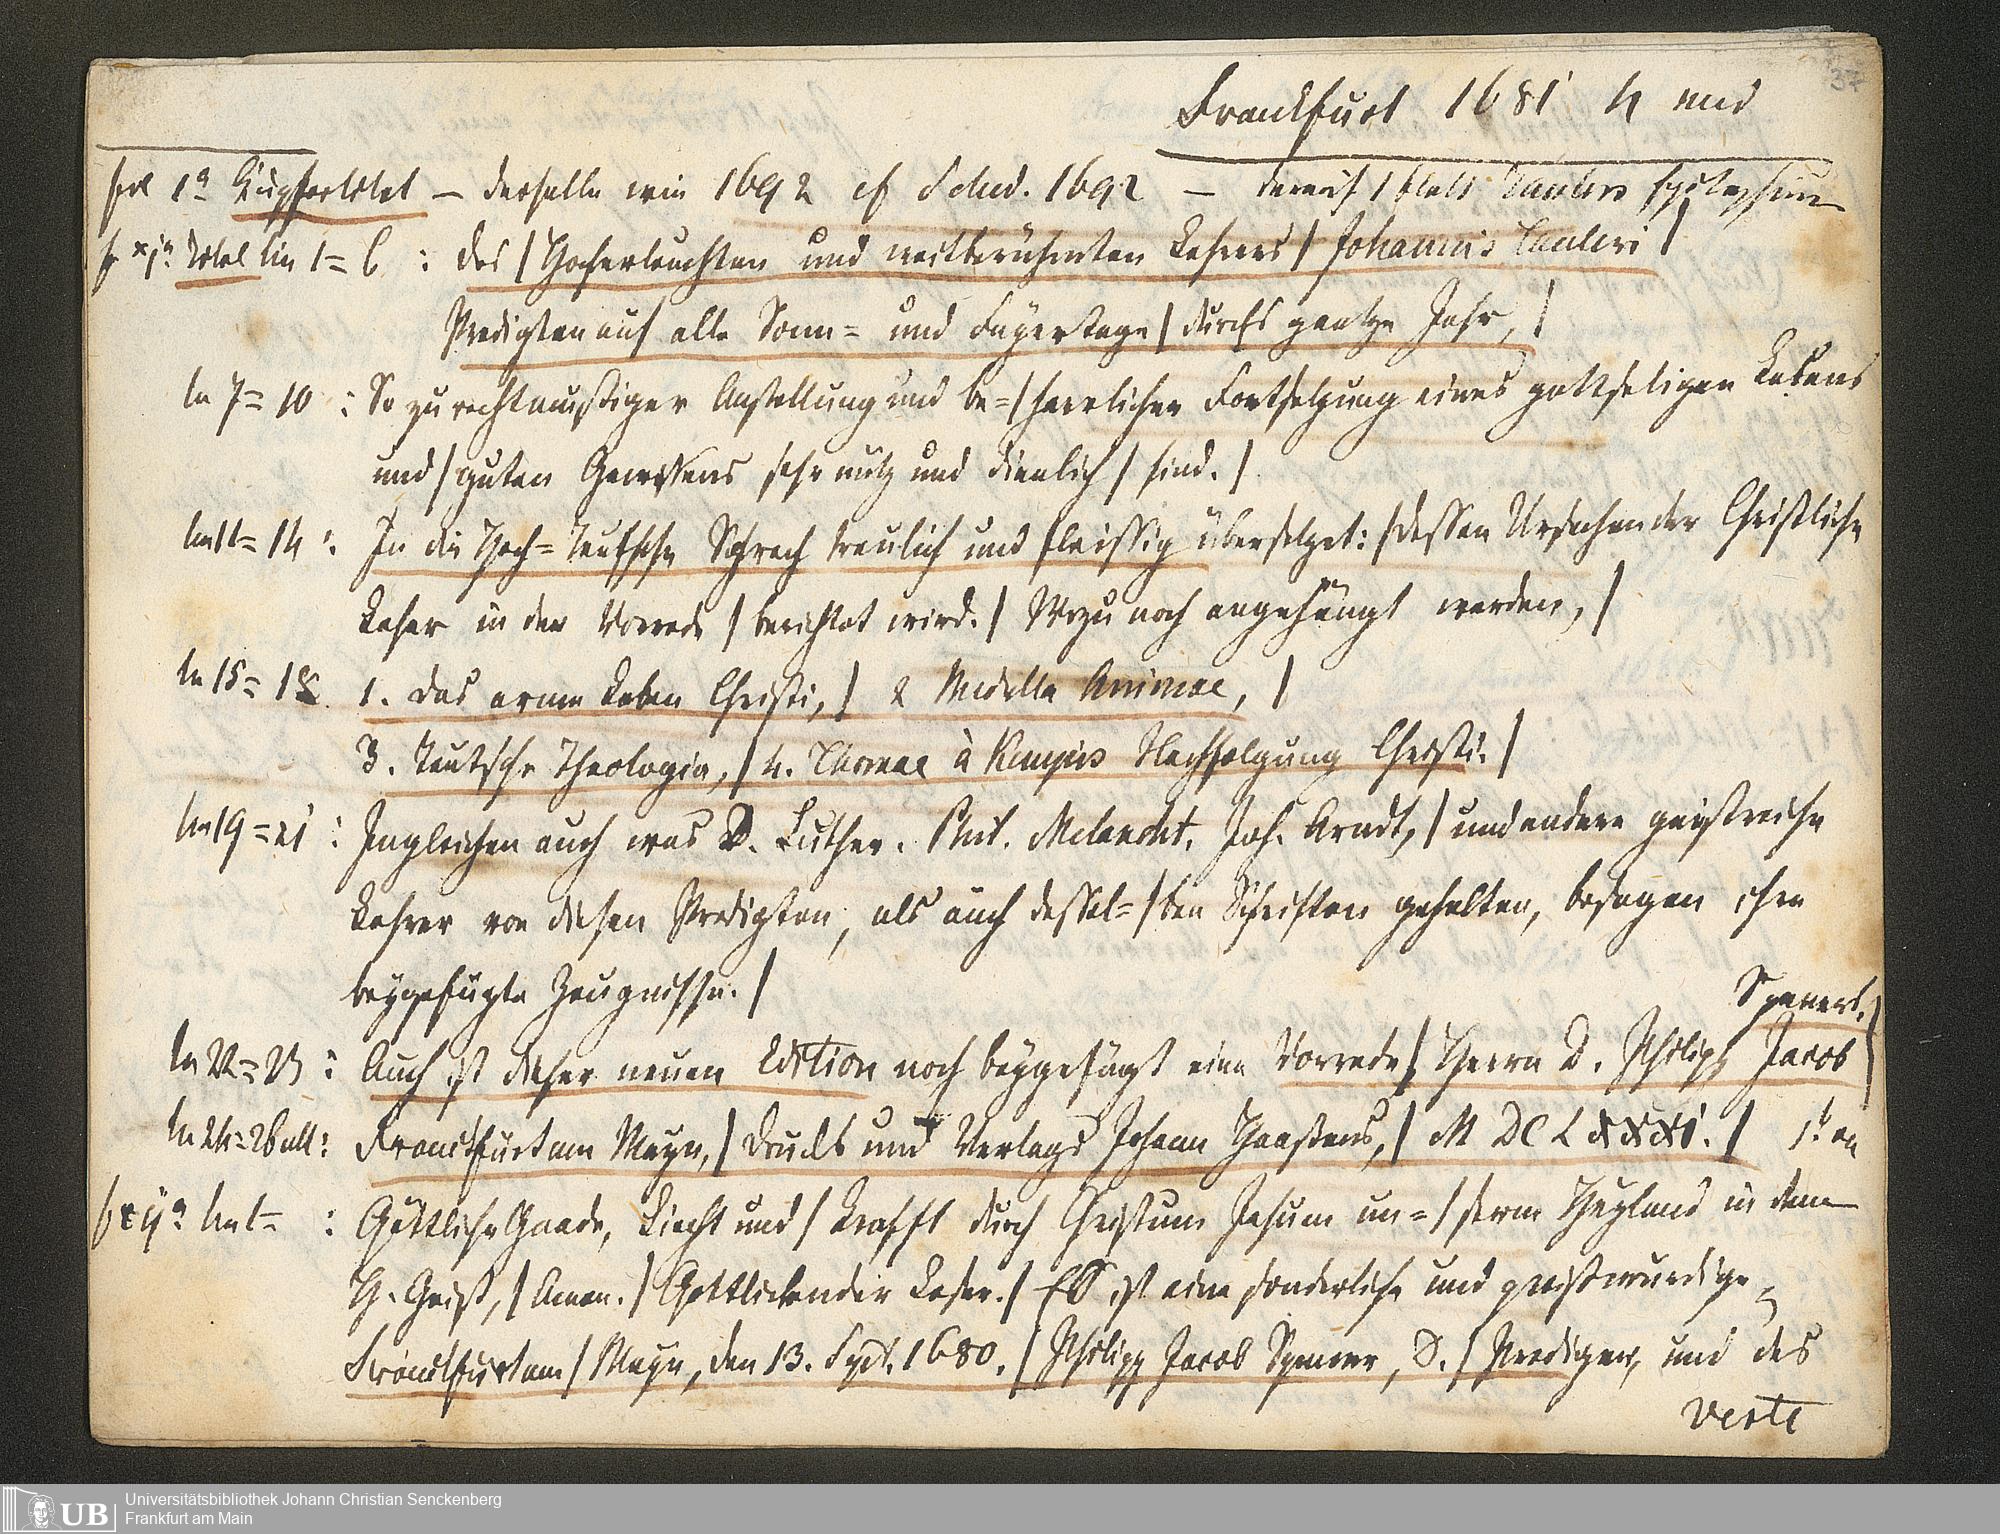 37
Franckfurt 1681 4 und
fol 1a Kupfertitel — derselbe wie 1692 cf Schud. 1692 — darauf 1 Blatt Taulers
1a Titel lin 1=6 : des | Hocherleuchten und weitberühmten Lehrers | Johannis Tauleri |
Predigten auf alle Sonn= und Feyertage | durchs gantze Jahr, |
ln 7=10 : So zu rechtmäßiger Anstellung und be=|harrlicher Fortsetzung eines gottseligen Lebens
und | guten Gewissens sehr nütz und dienlich | sind. |
ln 11=14 : In die Hoch=Teutsche Sprach treulich und fleissig übersetzet: | dessen Ursachen der Christliche
Leser in der Vorrede | berichtet wird. | Wozu noch angehängt werden, |
ln 15=18 1. das arme Leben Christi, | 2 Medulla Animae, |
3. Teutsche Theologia, | 4. Thomae à Kempis Nachfolgung Christi. |
ln 19=21 : Ingleichen auch was D. Luther. Phil. Melancht. Joh. Arndt, | und andere geistreiche
Lehrer von diesen Predigten, als auch dessel=|ben Schriften gehalten, besagen ihre
beygefügte Zeugnisse. |
Speners. |
ln 22=23 : Auch ist dieser neuen Edition noch beygefügt eine Vorrede | Herrn D. Philipp Jacob
ln 24=26 ult: Franckfurt am Mayn, | Druckts und Verlegts Johann Haaßens, | M DC LXXXI. |
ln 1= : Göttliche Gnade, Liecht und | Krafft durch Christum Jesum un=|serm Heyland in dem
H. Geist, | Amen. | Gottliebender Leser. | ES ist eine sonderliche und preißwürdige
Franckfurt am | Mayn, den 13. Sept. 1680. | Philipp Jacob Spener, D. | Prediger, und des
verte
Universitätsbibliothek Johann Christian Senckenberg
Frankfurt am Main
UB